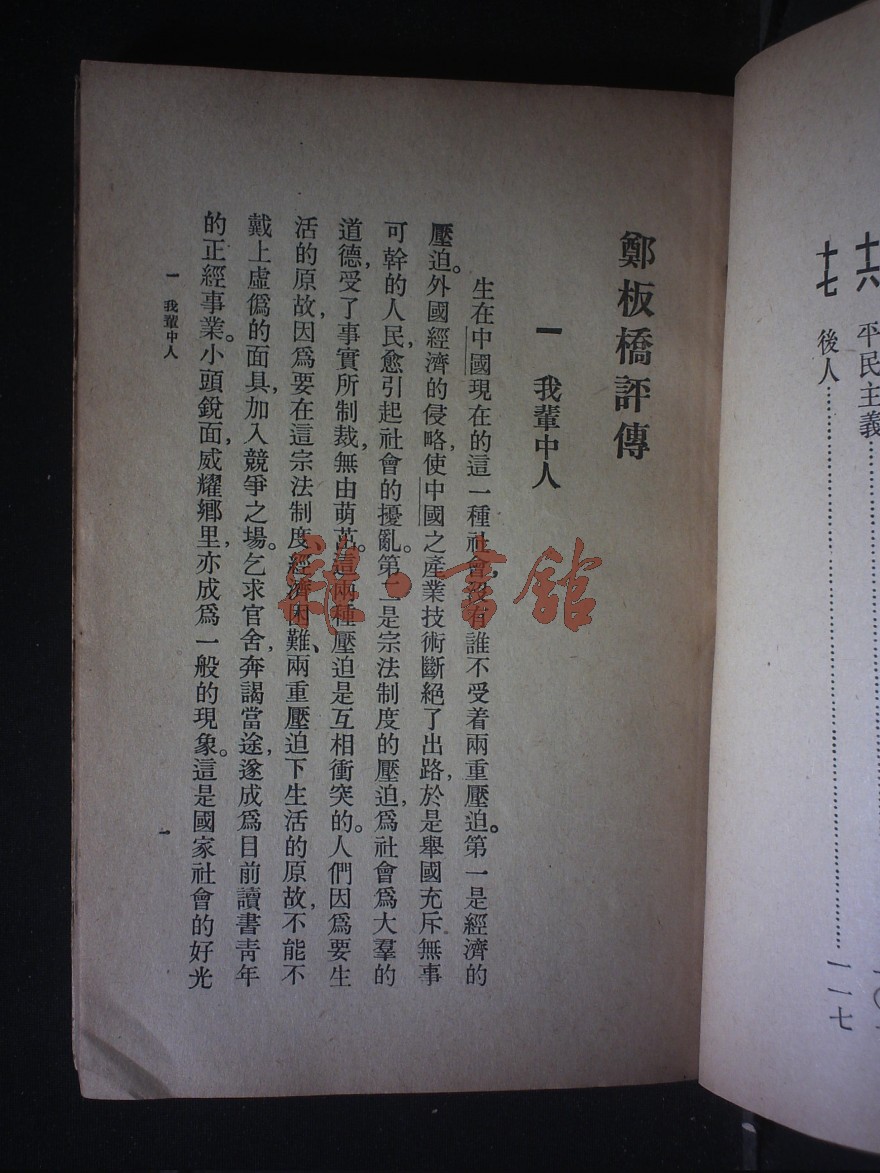 十六 平民主義
十七 後人 一一七
鄭板橋評傳
一 我輩中人
生在中國現在的這一種社會,沒有誰不受着兩重壓迫。第一是經濟的
壓迫。外國經濟的侵略,使中國之產業技術斷絕了出路,於是舉國充斥無事
可幹的人民,愈引起社會的擾亂。第二是宗法制度的壓迫,爲社會爲大羣的
道德,受了事實所制裁,無由萌茁。這兩種壓迫是互相衝突的。人們因爲要生
活的原故,因爲要在這宗法制度經濟困難、兩重壓迫下生活的原故,不能不
戴上虛僞的面具,加入競爭之場。乞求官舍,奔謁當途,遂成爲目前讀書青年
的正經事業。小頭銳面,威耀鄉里,亦成爲一般的現象。這是國家社會的好光
一 我輩中人
一
書館